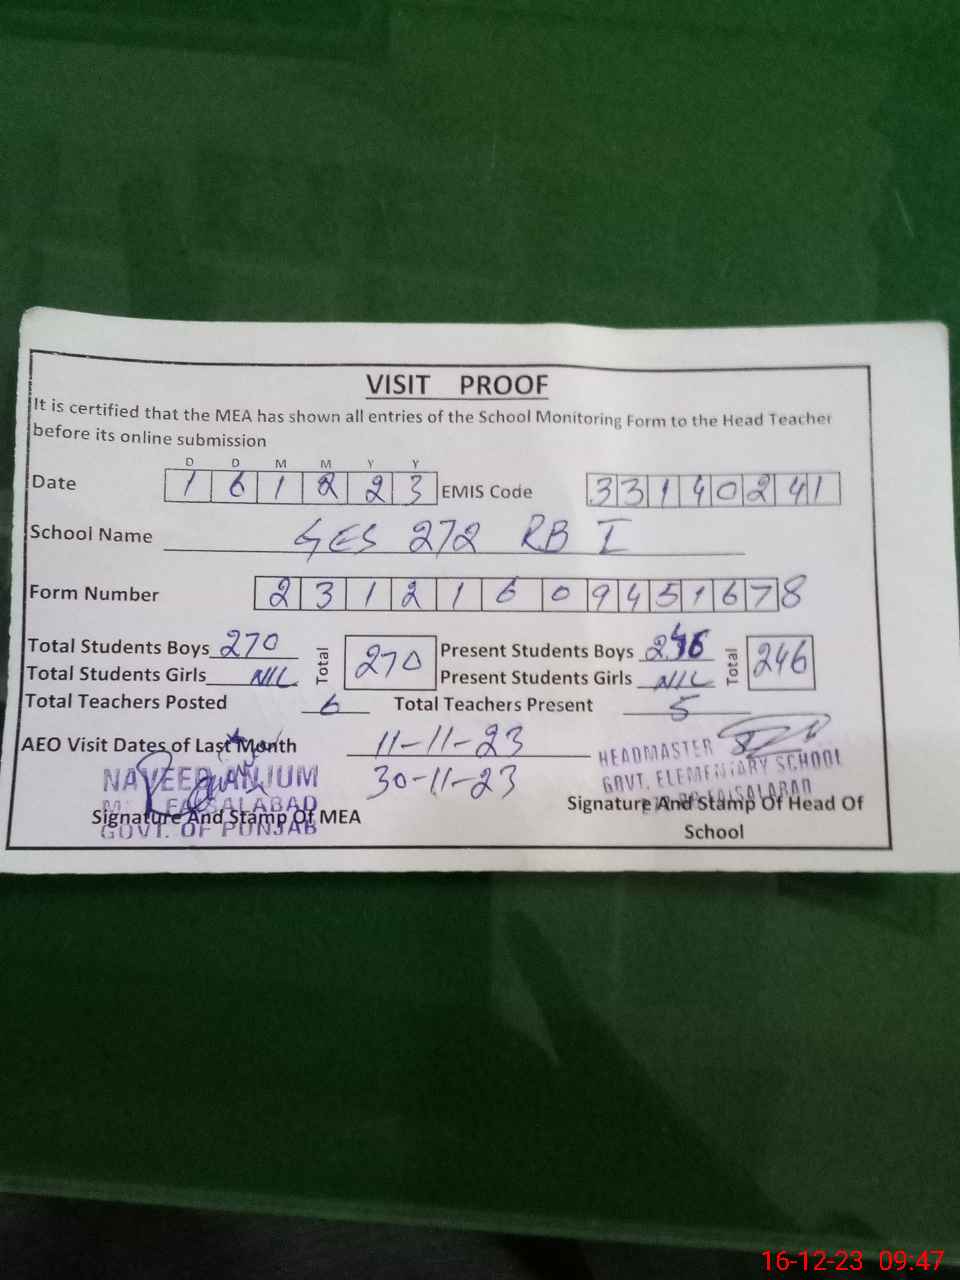 VISIT PROOF
It is certified that the MEA has shown all entries of the School Monitoring Form to the Head Teacher
before its online submission
D D M M Y Y
Date 1 6 1 2 2 3 EMIS Code 3 3 1 4 0 2 4 1
School Name GES 272 RB I
Form Number 2 3 1 2 1 6 0 9 4 5 1 6 7 8
Total Students Boys 270 Total 270 Present Students Boys 246 Total 246
Total Students Girls NIL Present Students Girls NIL
Total Teachers Posted 6 Total Teachers Present 5
AEO Visit Dates of Last Month 11-11-23
30-11-23
NAVEED ANJUM
FAISALABAD
GOVT. OF PUNJAB
Signature And Stamp Of MEA
HEADMASTER
GOVT. ELEMENTARY SCHOOL
FAISALABAD
Signature And Stamp Of Head Of
School
16-12-23 09:47